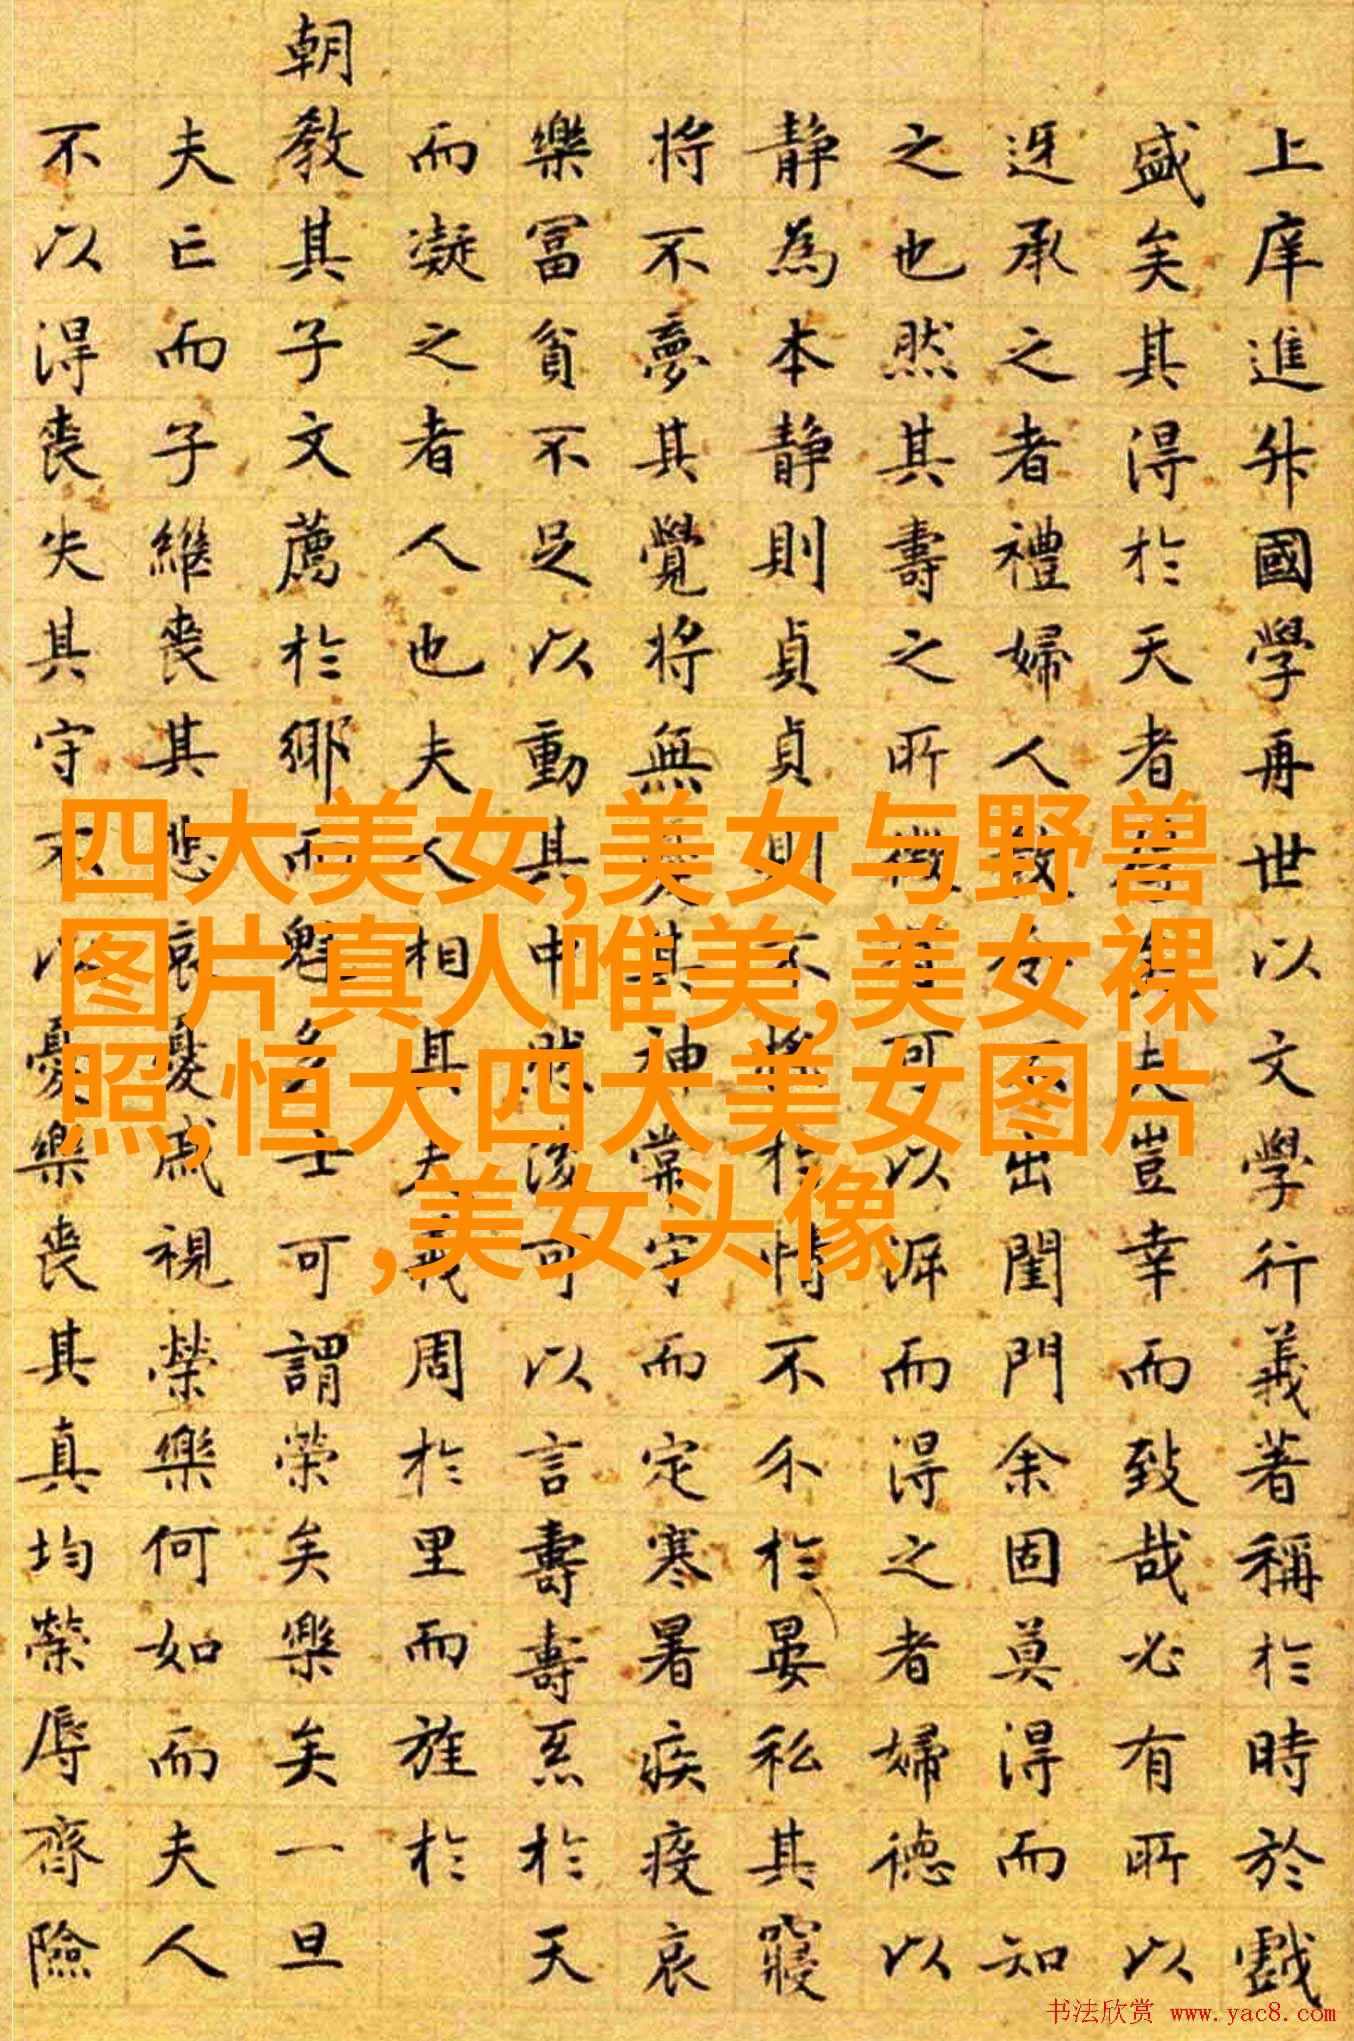 上庠進升國學再世以文學行義著稱於時於戲
盛矣其得於天者夫豈幸而致哉必有所以
迓承之者禮婦人教令不出閨門余固莫得而知
之也然其壽之所徵有可以源而得之者婦德以
静為本静則貞貞則不於情不尒於晏私其寢
将不夢其覺将無其神常守而定寒暑疾疫哀
樂冨貧不足以動其中然後可以言壽壽系於天
而凝之者人也夫人相其夫義周於里而旌於
朝教其子文薦於鄉而魁多士可謂榮矣樂矣一旦
夫亡而子継喪其悲哀憂戚視榮樂何如而夫人
不以得喪失其守不以憂樂喪其真均榮辱齊險
四大美女,美女与野兽
图片真人唯美,美女裸
照,恒大四大美女图片
,美女头像
书法欣赏 www.yac8.com